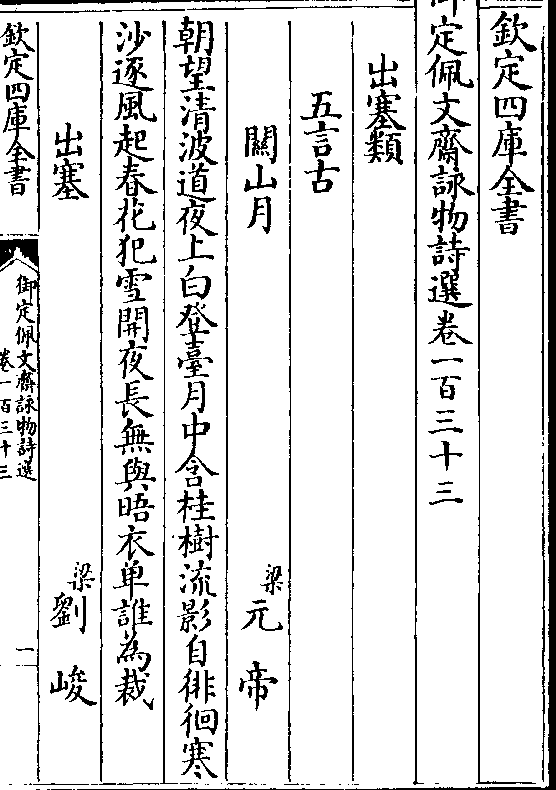 欽定四庫全書
御定佩文齋詠物詩選卷一百三十三
出塞類
五言古
關山月 梁元帝
朝望清波道夜上白登臺月中含桂樹流影自徘徊寒
沙逐風起春花犯雪開夜長無與晤衣单誰為裁
出塞 梁劉峻
欽定四庫全書 御定佩文齋詠物詩選 卷一百三十三 一